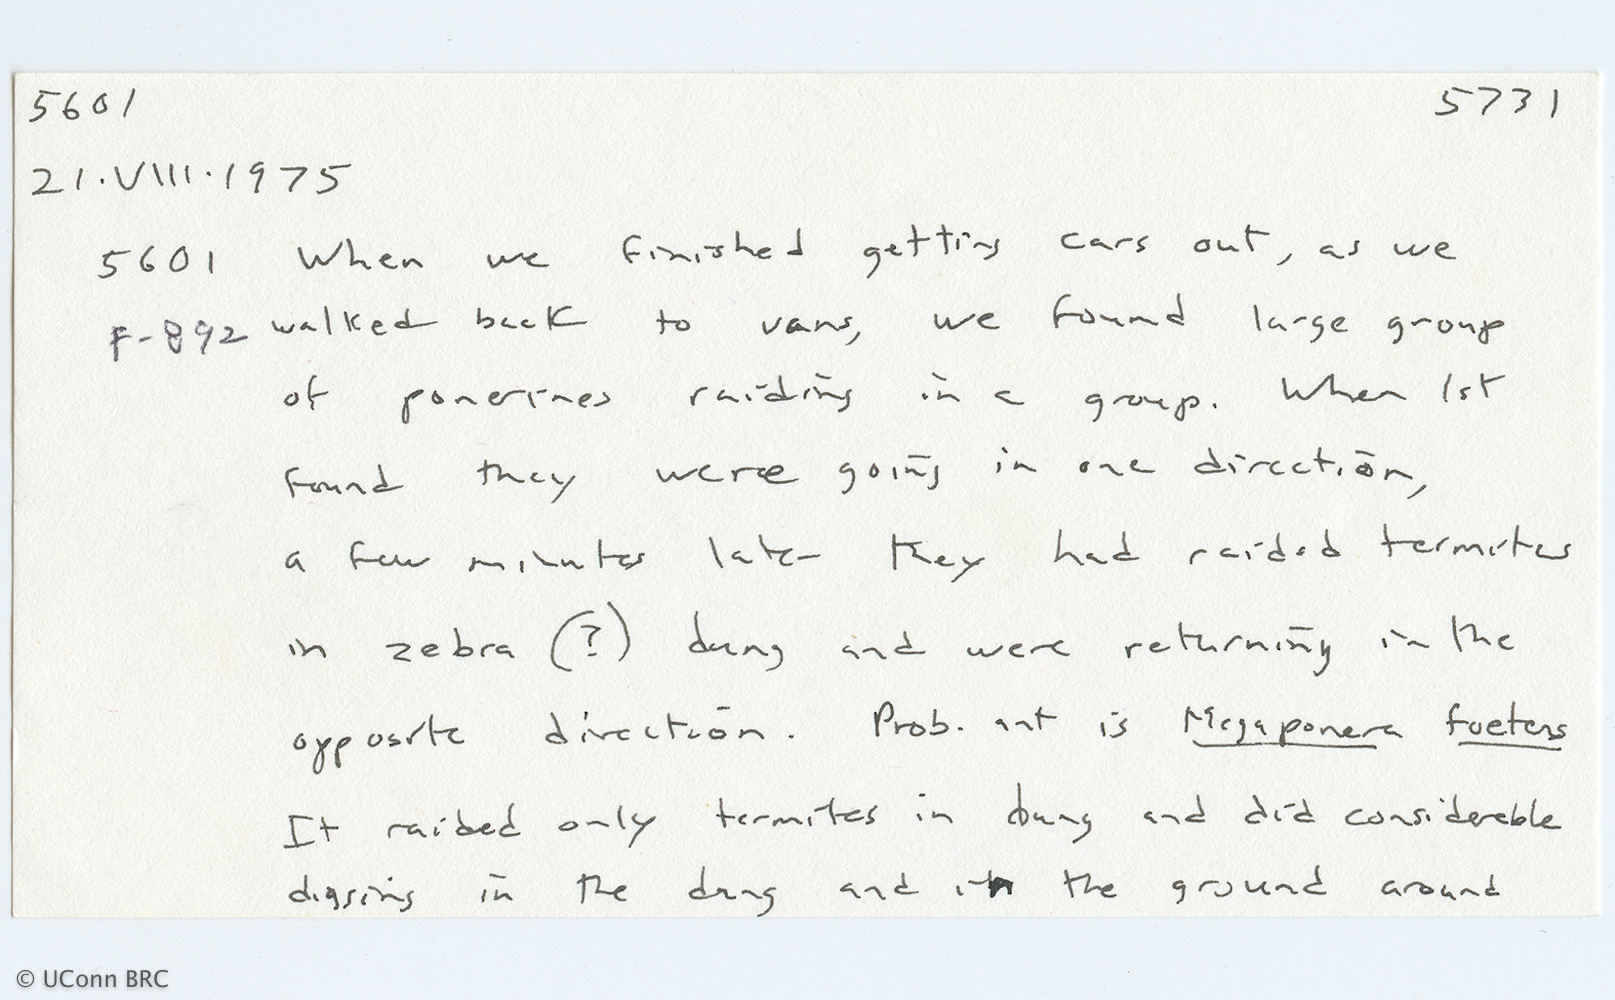 5601 5731
21.VIII.1975
5601 When we finished getting cars out, as we
F-892 walked back to vans, we found large group
of ponerines raiding in a group. When 1st
found they were going in one direction,
a few minutes later they had raided termites
in zebra (?) dung and were returning in the
opposite direction. Prob. ant is Megaponera foetens
It raided only termites in dung and did considerable
digging in the dung and in the ground around
© UConn BRC